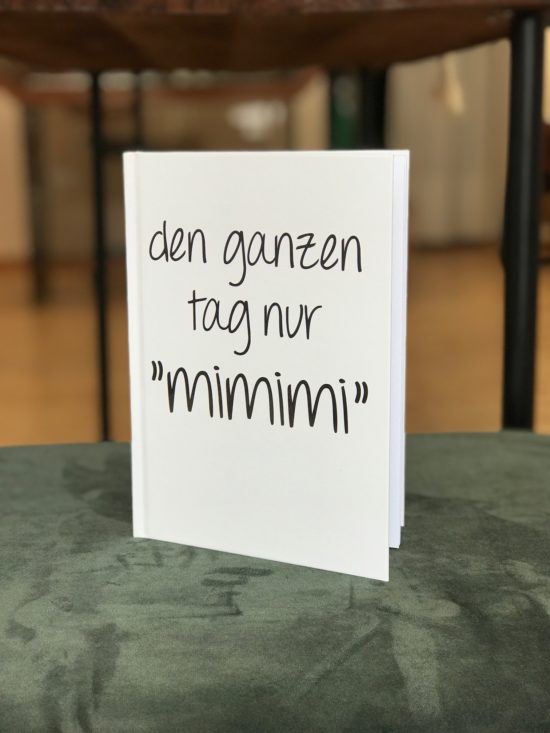 den ganzen
tag nur
"mimimi"